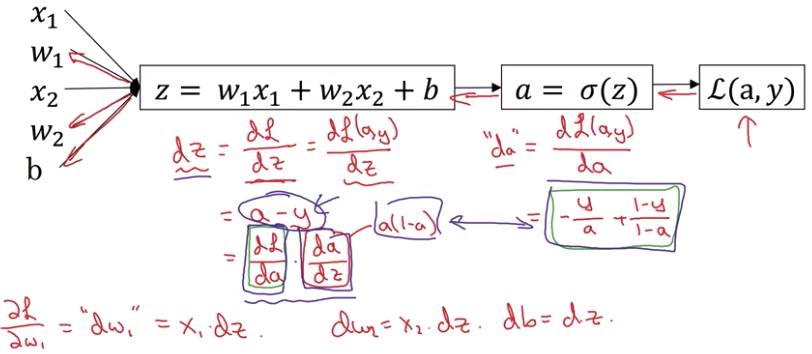 x₁
w₁
x₂
w₂
b
z = w₁x₁ + w₂x₂ + b
a = σ(z)
ℒ(a, y)
dz = dℒ/dz = dℒ(a,y)/dz
"da" = dℒ(a,y)/da
= a - y
a(1-a)
= -y/a + (1-y)/(1-a)
= dℒ/da · da/dz
∂ℒ/∂w₁ = "dw₁" = x₁ · dz.
dw₂ = x₂ · dz.
db = dz.